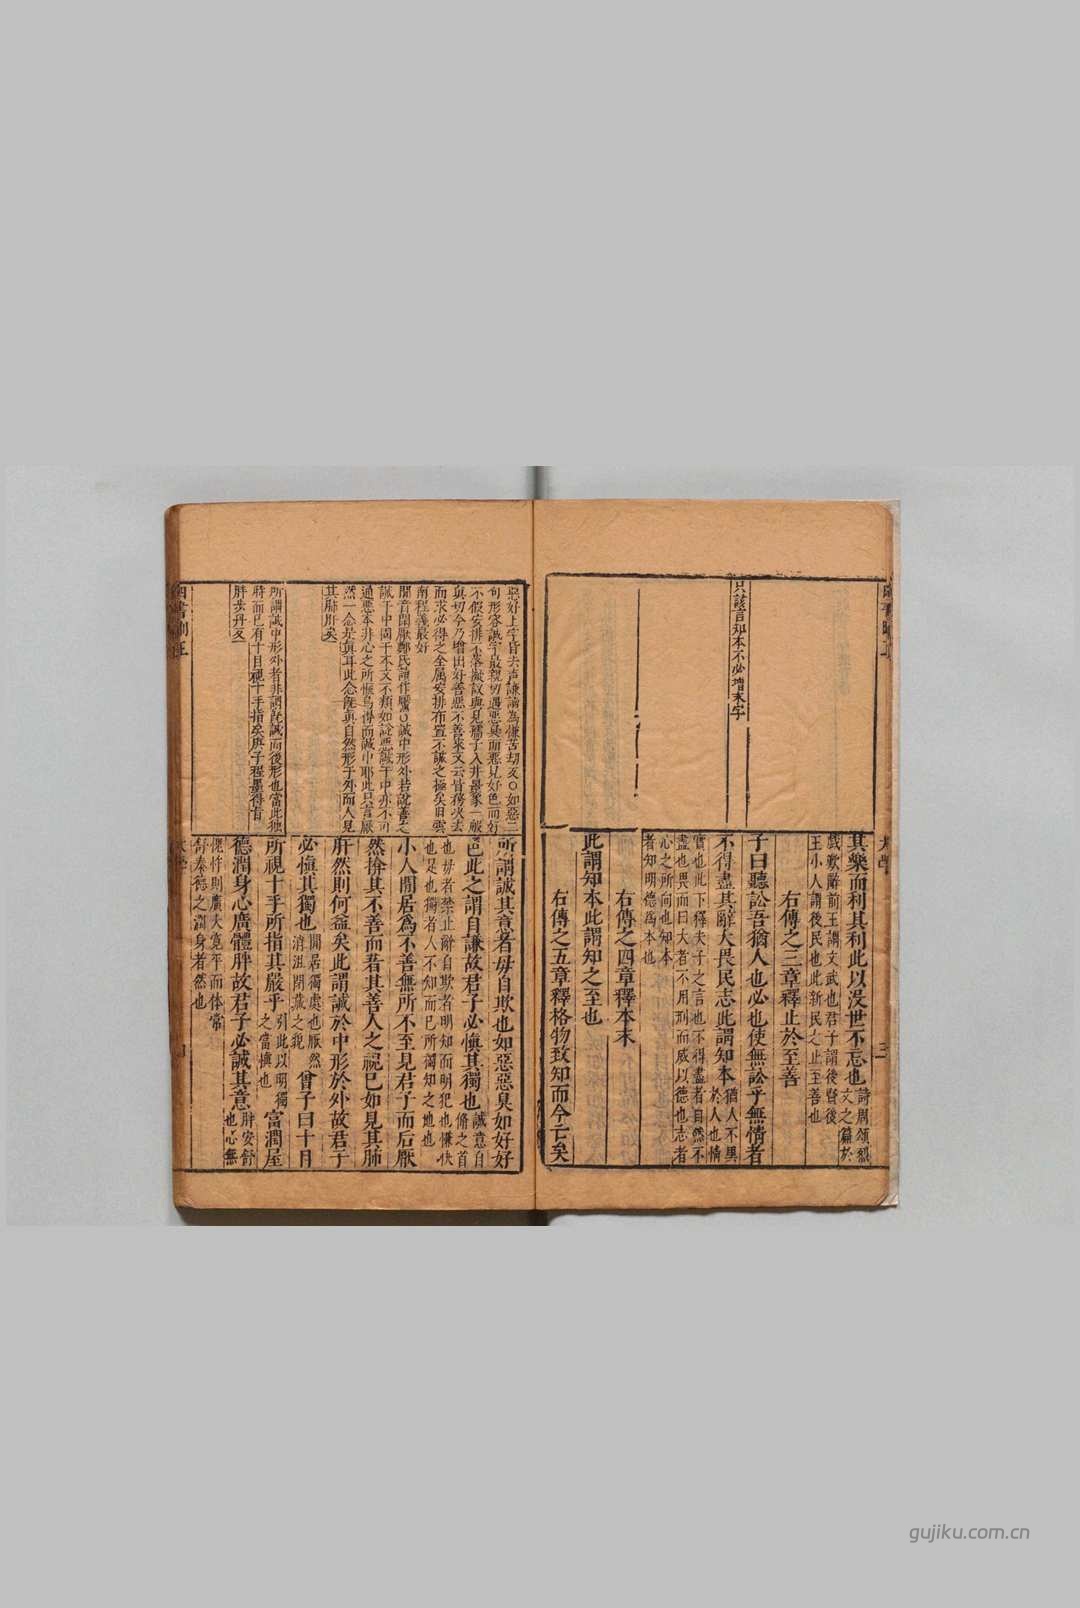 只該言知本不必增末字
大學
三
其樂而利其利此以没世不忘也詩周頌烈文之篇於
戲歎辭前王謂文武也君子謂後賢後
王小人謂後民也此新民之止至善也
右傳之三章釋止於至善
子曰聽訟吾猶人也必也使無訟乎無情者
不得盡其辭大畏民志此謂知本猶人不異於人也情
實也此下釋夫子之言也不得盡者自然不
盡也畏而曰大者不用刑而威以德也志者
心之所向也知本
者知明德為本也
右傳之四章釋本末
此謂知本此謂知之至也
右傳之五章釋格物致知而今亡矣
惡好上字皆去声謙讀為慊苦刧反○如惡二
句形容誠字最親切遇惡臭而惡見好色而好
不假安排不落擬議與見孺子入井景象一般
與切今乃增出好善惡不善來又云皆務决去
而求必得之全屬安排布置不誠之極矣旧雲
南程義最好
閒音閑厭鄭氏讀作黶○誠中形外若說善之
誠于中固于本文不類如說惡誠于中亦不可
通惡本非心之所愜烏得而誠中耶此只言厭
然一念是真耳此念旣真自然形于外而人見
其肺肝矣
所謂誠中形外者非謂旣誠而後形也當此獨
時而已有十目視十手指矣庚子程墨得旨
胖步丹反
所謂誠其意者毋自欺也如惡惡臭如好好
色此之謂自謙故君子必慎其獨也誠意自脩之首
也毋者禁止辭自欺者明知而明犯也慊快
也足也獨者人不知而已所獨知之地也
小人閒居爲不善無所不至見君子而后厭
然揜其不善而著其善人之視己如見其肺
肝然則何益矣此謂誠於中形於外故君子
必慎其獨也閒居獨處也厭然消沮閉藏之貌曾子曰十目
所視十手所指其嚴乎引此以明獨之當慎也富潤屋
德潤身心廣體胖故君子必誠其意胖安舒也心無
愧怍則廣大寬平而體常
舒泰德之潤身者然也
四書
大學